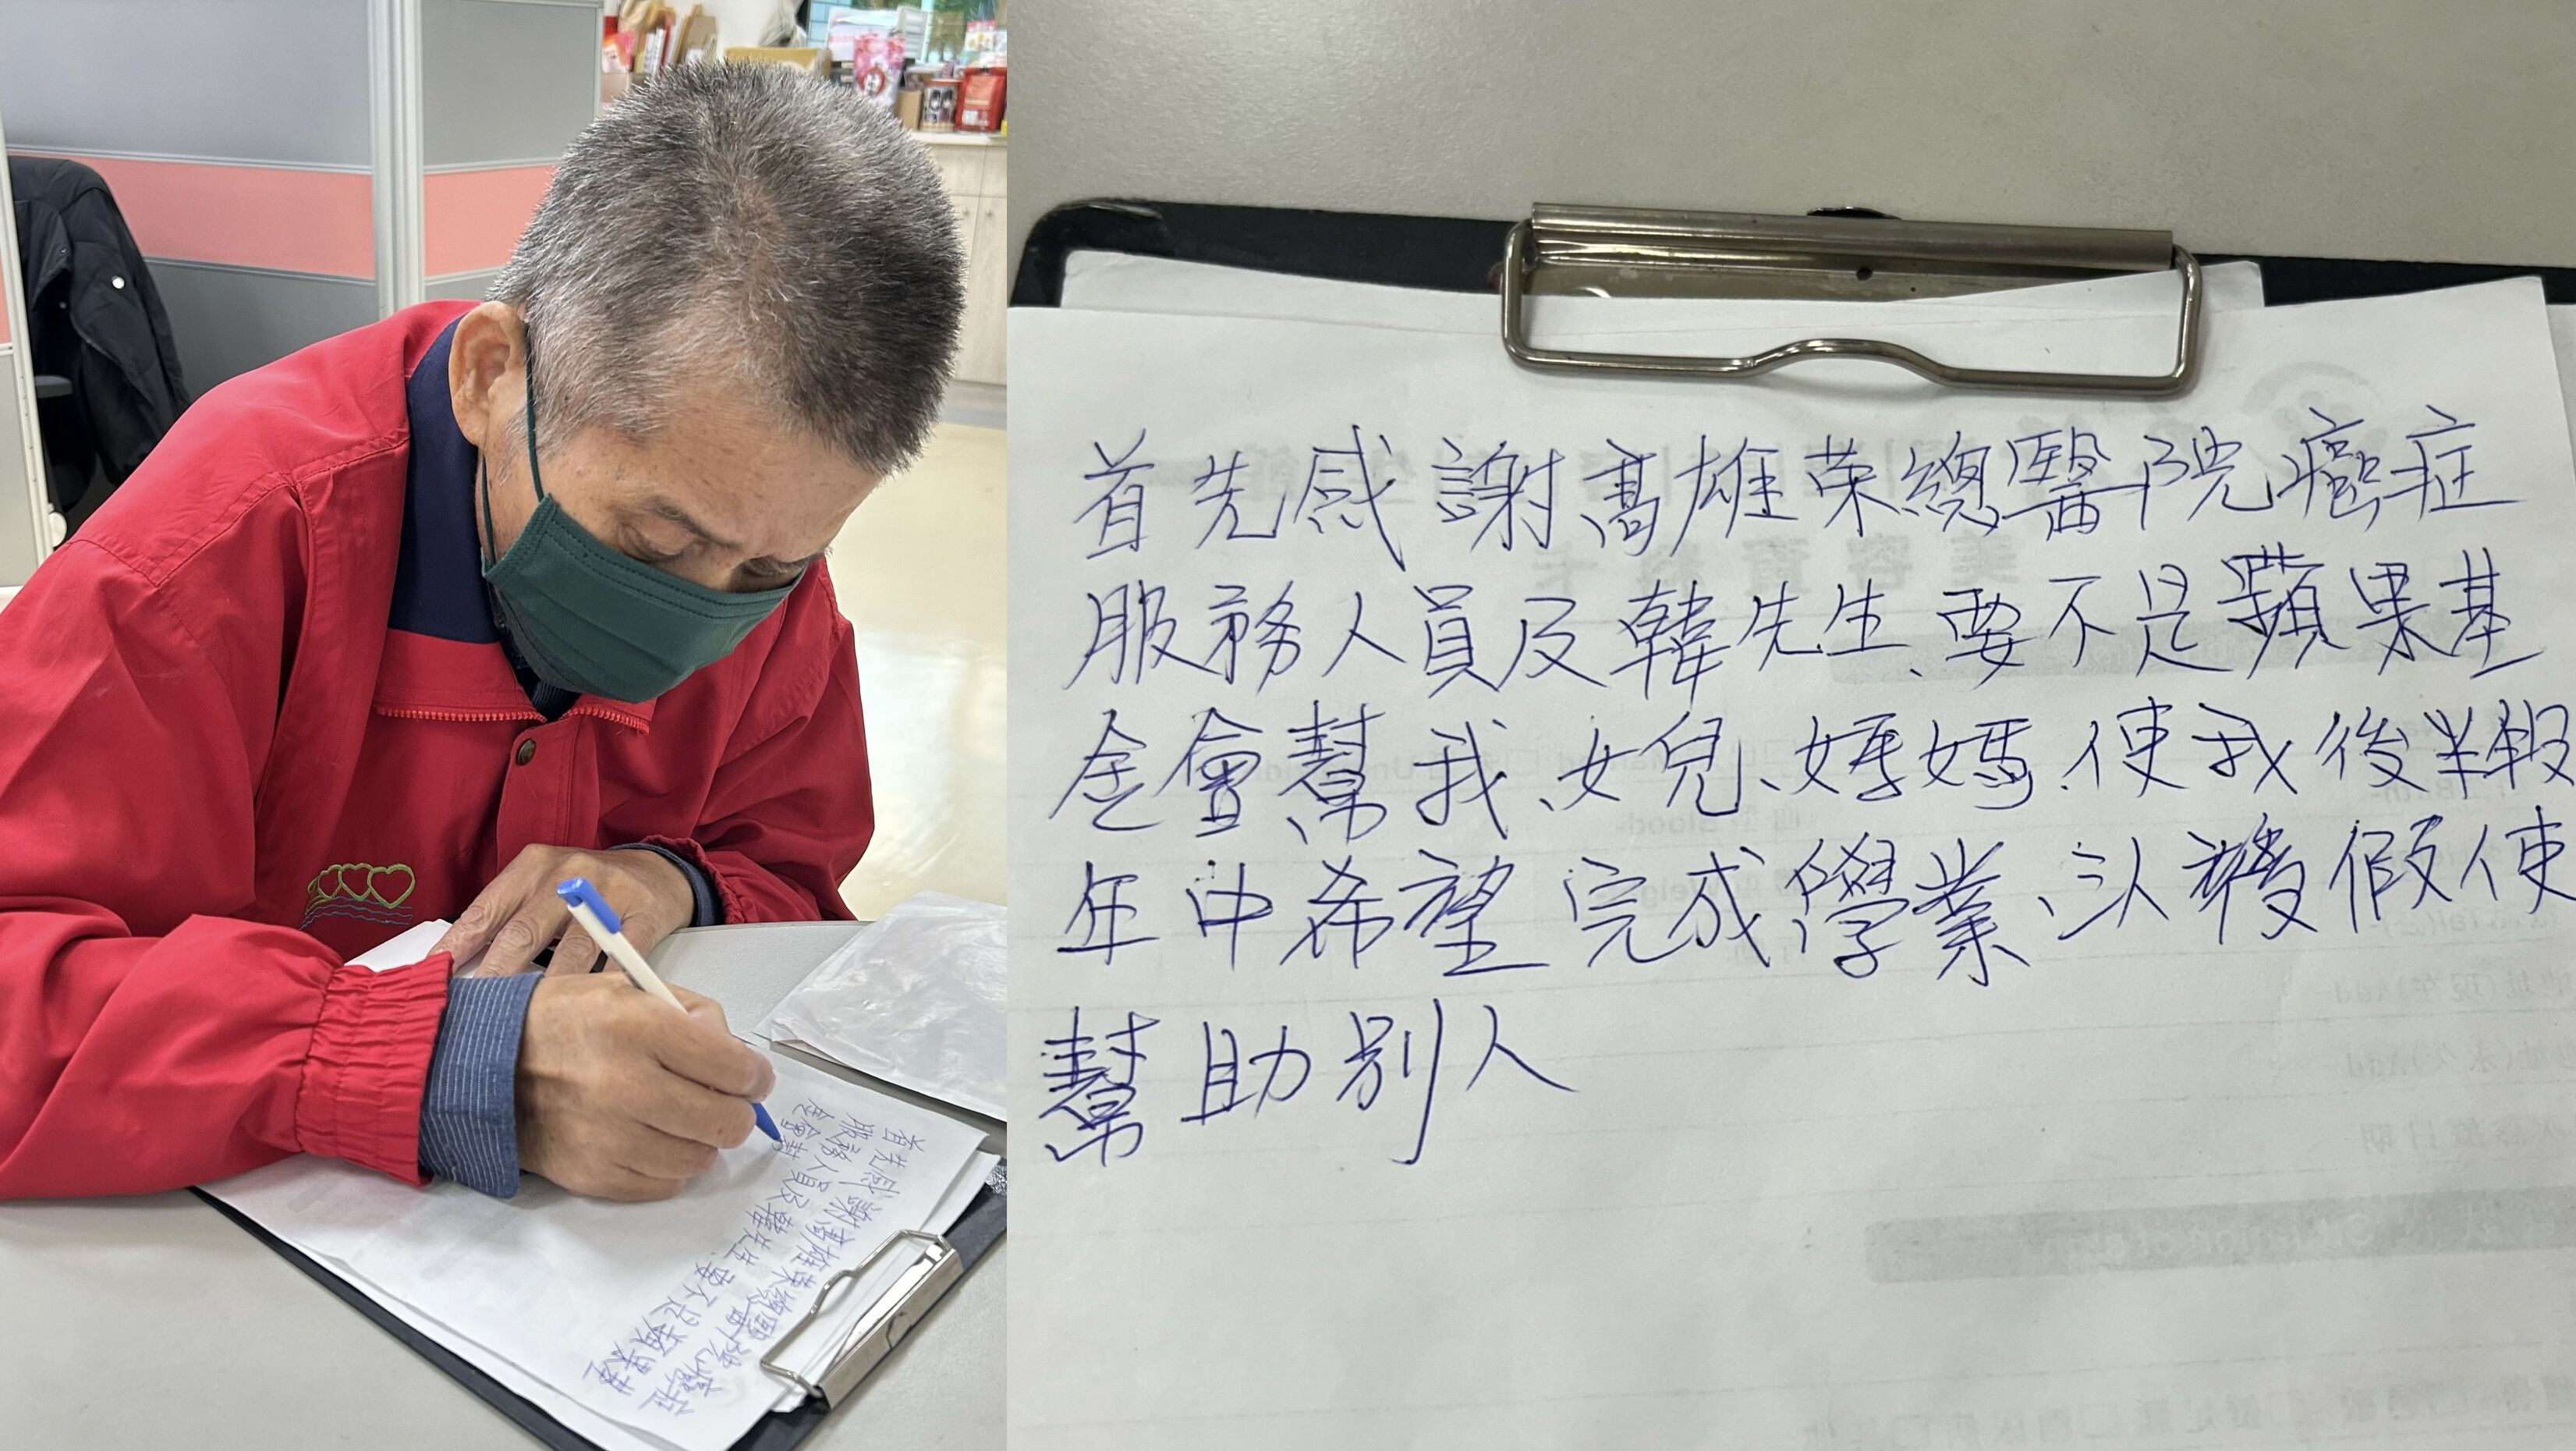 首先感謝高雄荣總醫院癌症
服務人員及韓先生、要不是蘋果基
金會幫我、女兒、媽媽、使我後半報
年中希望完成學業、以後假使
幫助別人